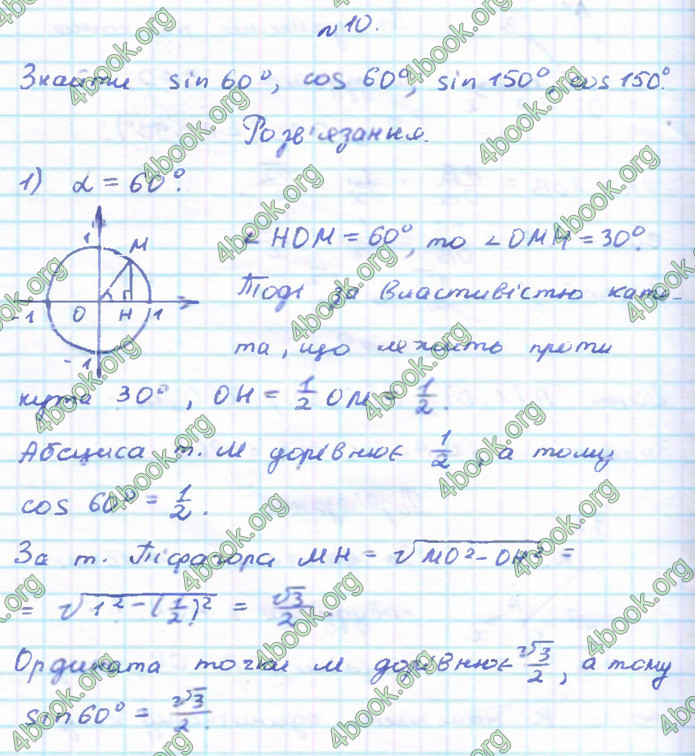 №10.
Знайти sin 60°, cos 60°, sin 150°, cos 150°.
Розв'язання.
1) α = 60°.
1 M
∠HOM = 60°, то ∠OMH = 30°.
-1 O H 1
Тоді за властивістю кате-
-1
та, що лежить проти
кута 30°, OH = 1/2 OM = 1/2.
Абсциса т. M дорівнює 1/2, а тому
cos 60° = 1/2.
За т. Піфагора MH = √(MO²-OH²) =
= √(1²-(1/2)²) = √3/2.
Ордината точки M дорівнює √3/2, а тому
sin 60° = √3/2.
4book.org